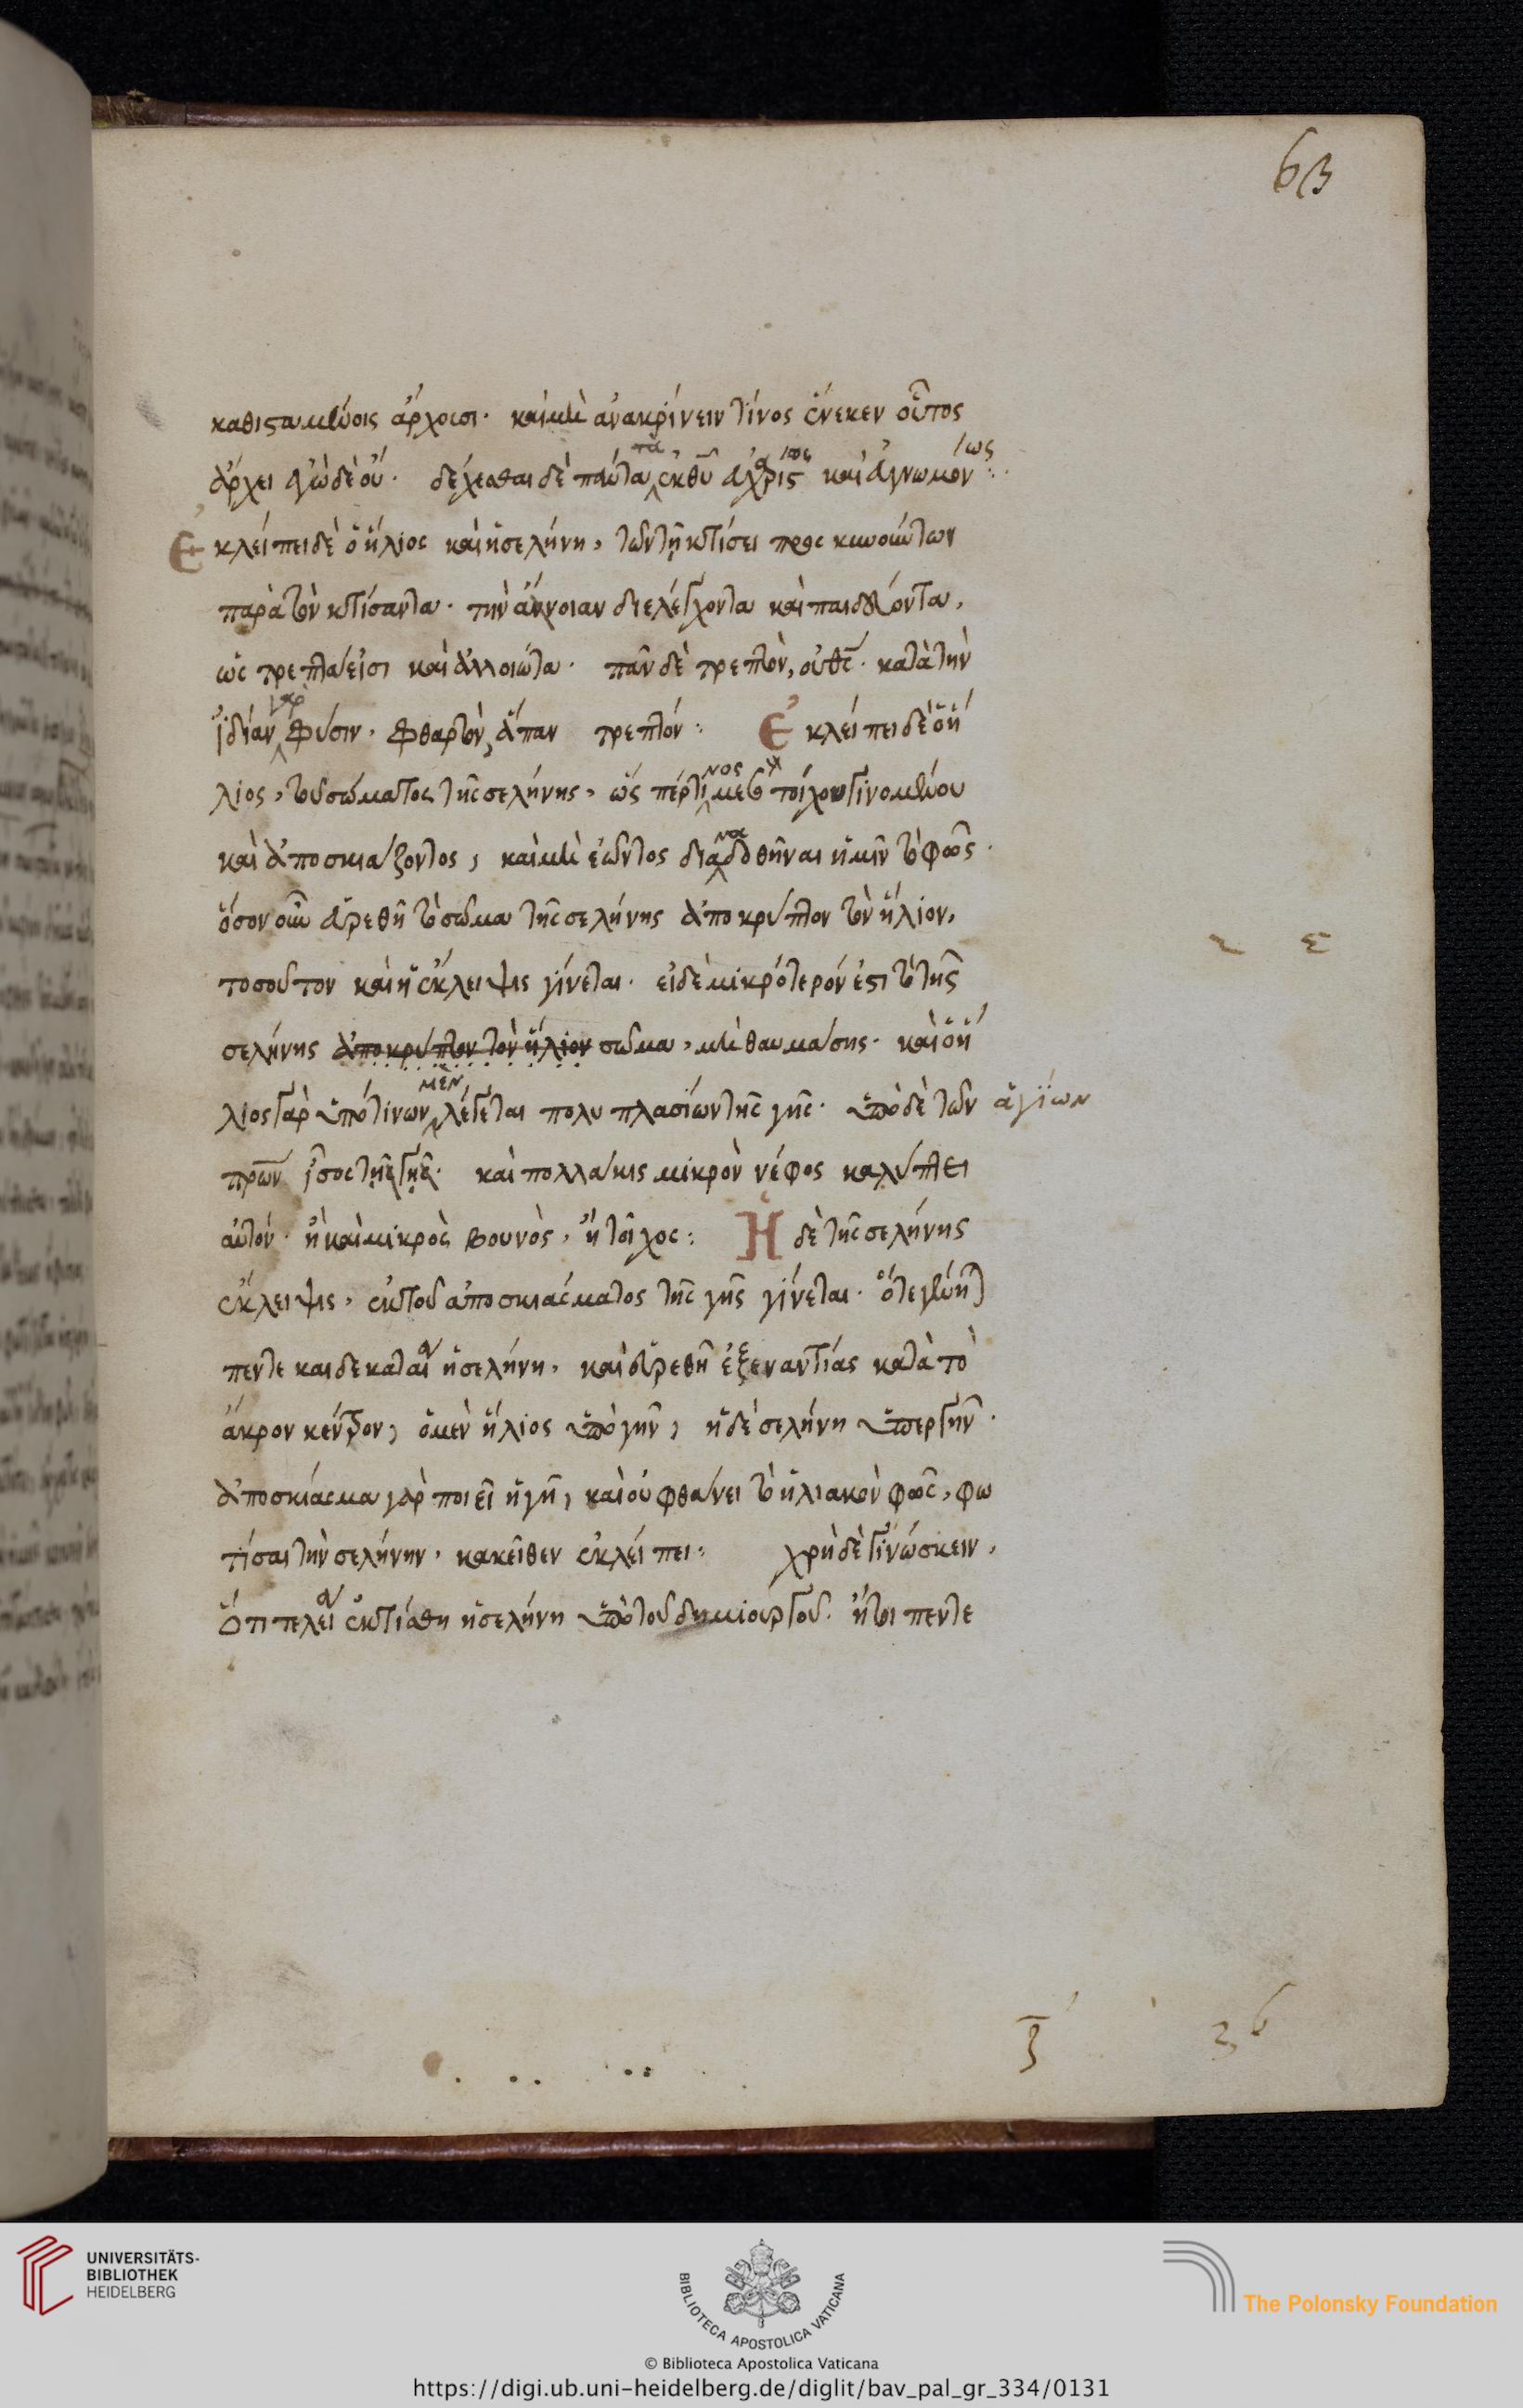 63
καθισταμένοις ἄρχουσι· καὶ μὴ ἀνακρίνειν τίνος ἕνεκεν οὗτος
ἄρχει ἐγὼ δὲ οὔ· δέχεσθαι δὲ πάντα τὰ ἐκ θυ ἀχαρίστως καὶ ἀγνωμόνως:·
Ἐκλείπει δὲ ὁ ἥλιος καὶ ἡ σελήνη, τῶν τῇ κτίσει προσκυνούντων
παρὰ τὸν κτίσαντα· τὴν ἄννοιαν διελέγχοντα καὶ παιδεύοντα,
ὡς τρεπτά εἰσι καὶ ἀλλοιωτά· πᾶν δὲ τρεπτὸν, οὐ θς· κατὰ τὴν
ἰδίαν γὰρ φύσιν· φθαρτὸν, ἅπαν τρεπτόν: Ἐκλείπει δὲ ὁ ἥ
λιος, τοῦ σώματος τῆς σελήνης, ὥσπερ τίνος μεσοτοίχου γινομένου
καὶ ἀποσκιάζοντος, καὶ μὴ ἐῶντος διαναδοθῆναι ἡμῖν τὸ φῶς·
ὅσον οὖν εὑρεθῆ τὸ σῶμα τῆς σελήνης ἀποκρύπτον τὸν ἥλιον,
τοσοῦτον καὶ ἡ ἔκλειψις γίνεται· εἰ δὲ μικρότερόν ἐστι τὸ τῆς
σελήνης ἀποκρύπτον τὸν ἥλιον σῶμα, μὴ θαυμάσης· καὶ ὁ ἥ
λιος γὰρ ὑπό τινων μὲν λέγεται πολυπλασίων τῆς γῆς· ὑπὸ δὲ τῶν ἁγίων
πρων ἴσος τῇ γῇ· καὶ πολλάκις μικρὸν νέφος καλύπτει
αὐτόν· ἢ καὶ μικρὸς βουνὸς, ἢ τοῖχος: Ἡ δὲ τῆς σελήνης
ἔκλειψις, ἐκ τοῦ ἀποσκιάσματος τῆς γῆς γίνεται· ὅτε γένηται
πεντεκαιδεκαταία ἡ σελήνη, καὶ εὑρεθῆ ἐξεναντίας κατὰ τὸ
ἄκρον κέντρον, ὁ μὲν ἥλιος ὑπὸ γῆν, ἡ δὲ σελήνη ὑπὲρ γῆν·
ἀποσκίασμα γὰρ ποιεῖ ἡ γῆ, καὶ οὐ φθάνει τὸ ἡλιακὸν φῶς, φω
τίσαι τὴν σελήνην· κακεῖθεν ἐκλείπει: χρὴ δὲ γινώσκειν,
Ὅτι τελεία ἐκτίσθη ἡ σελήνη ὑπὸ τοῦ δημιουργοῦ· ἤτοι πεντε
UNIVERSITÄTS-
BIBLIOTHEK
HEIDELBERG
BIBLIOTECA APOSTOLICA VATICANA
The Polonsky Foundation
© Biblioteca Apostolica Vaticana
https://digi.ub.uni-heidelberg.de/diglit/bav_pal_gr_334/0131